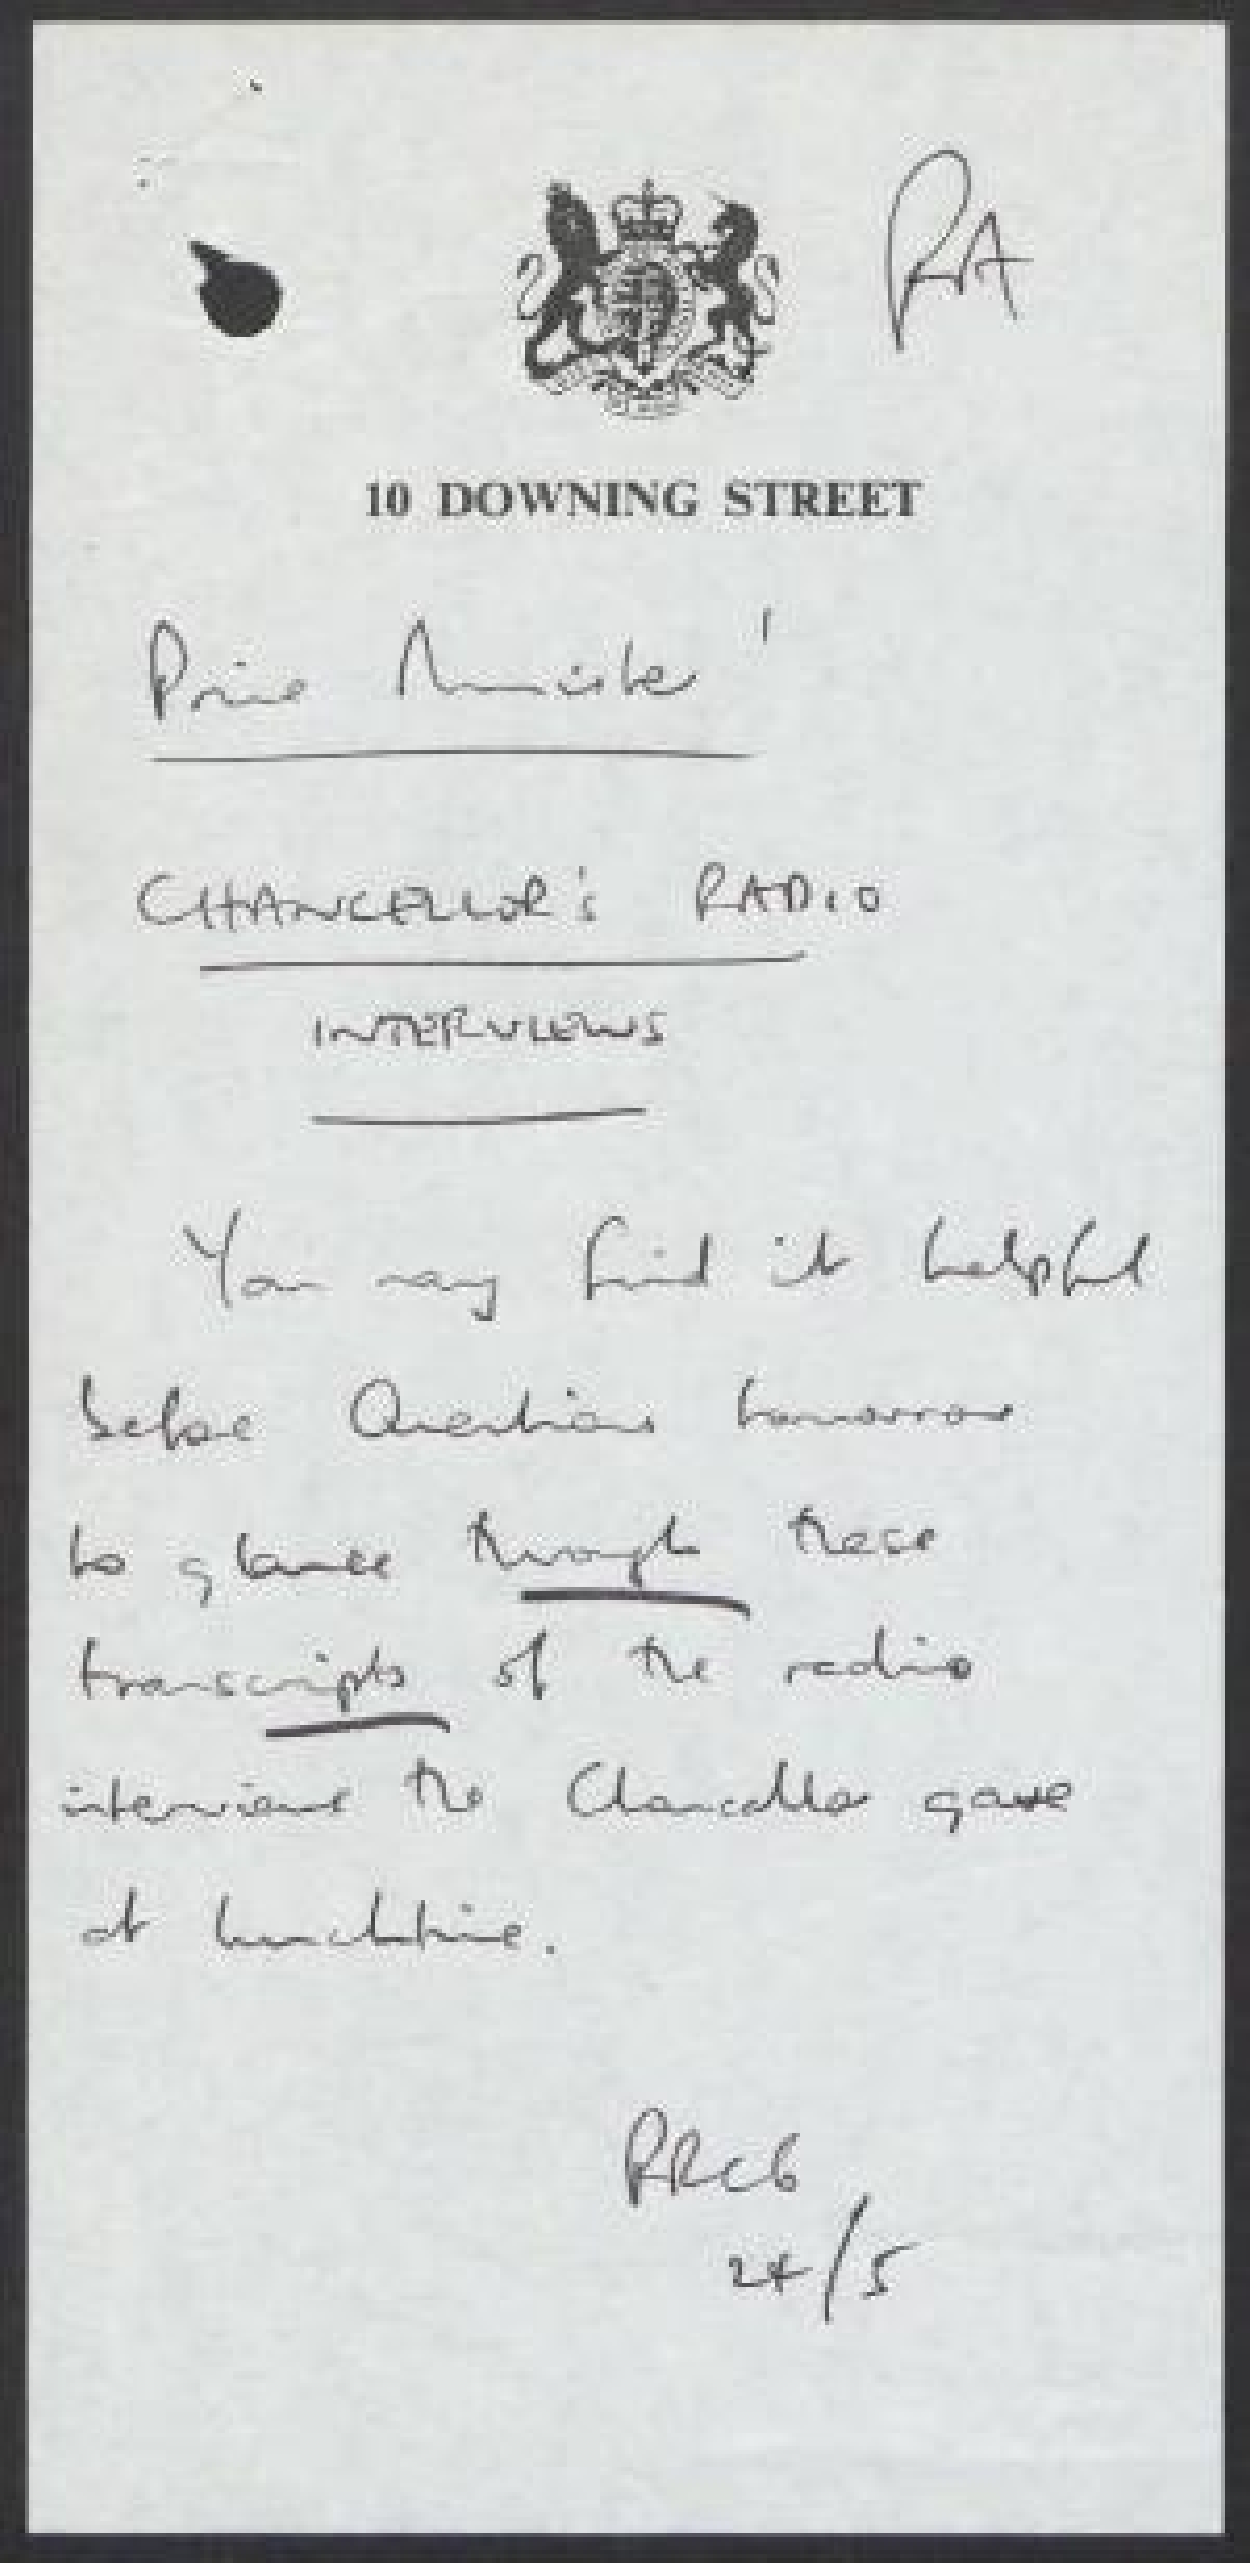 RA
10 DOWNING STREET
Prime Minister
CHANCELLOR'S RADIO
INTERVIEWS
You may find it helpful
before Questions tomorrow
to glance through these
transcripts of the radio
interviews the Chancellor gave
at lunchtime.
PRCG
24/5